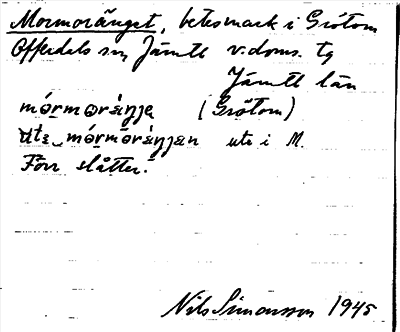 Mormoränget, betesmark i Grötom
Offerdals sn, Jämtl. v. doms. tg
Jämtl. län
mórmoràŋje (Grötom)
ute mórmoràŋjan ute i M.
Förr slåtter.
Nils Simonsson 1945